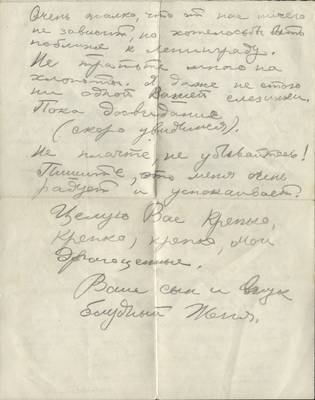 Очень жалко, что от нас ничего
не зависит, но хотелось бы быть
поближе к Ленинграду.
Не тратьте много на
хлопоты. Я даже не стою
ни одной Вашей слезинки.
Пока досвидание
(скоро увидимся).
Не плачте, не убивайтесь!
Пишите, это меня очень
радует и успокаивает.
Целую Вас крепко,
крепко, крепко, мои
драгоценные.
Ваш сын и внук
блудный Женя.